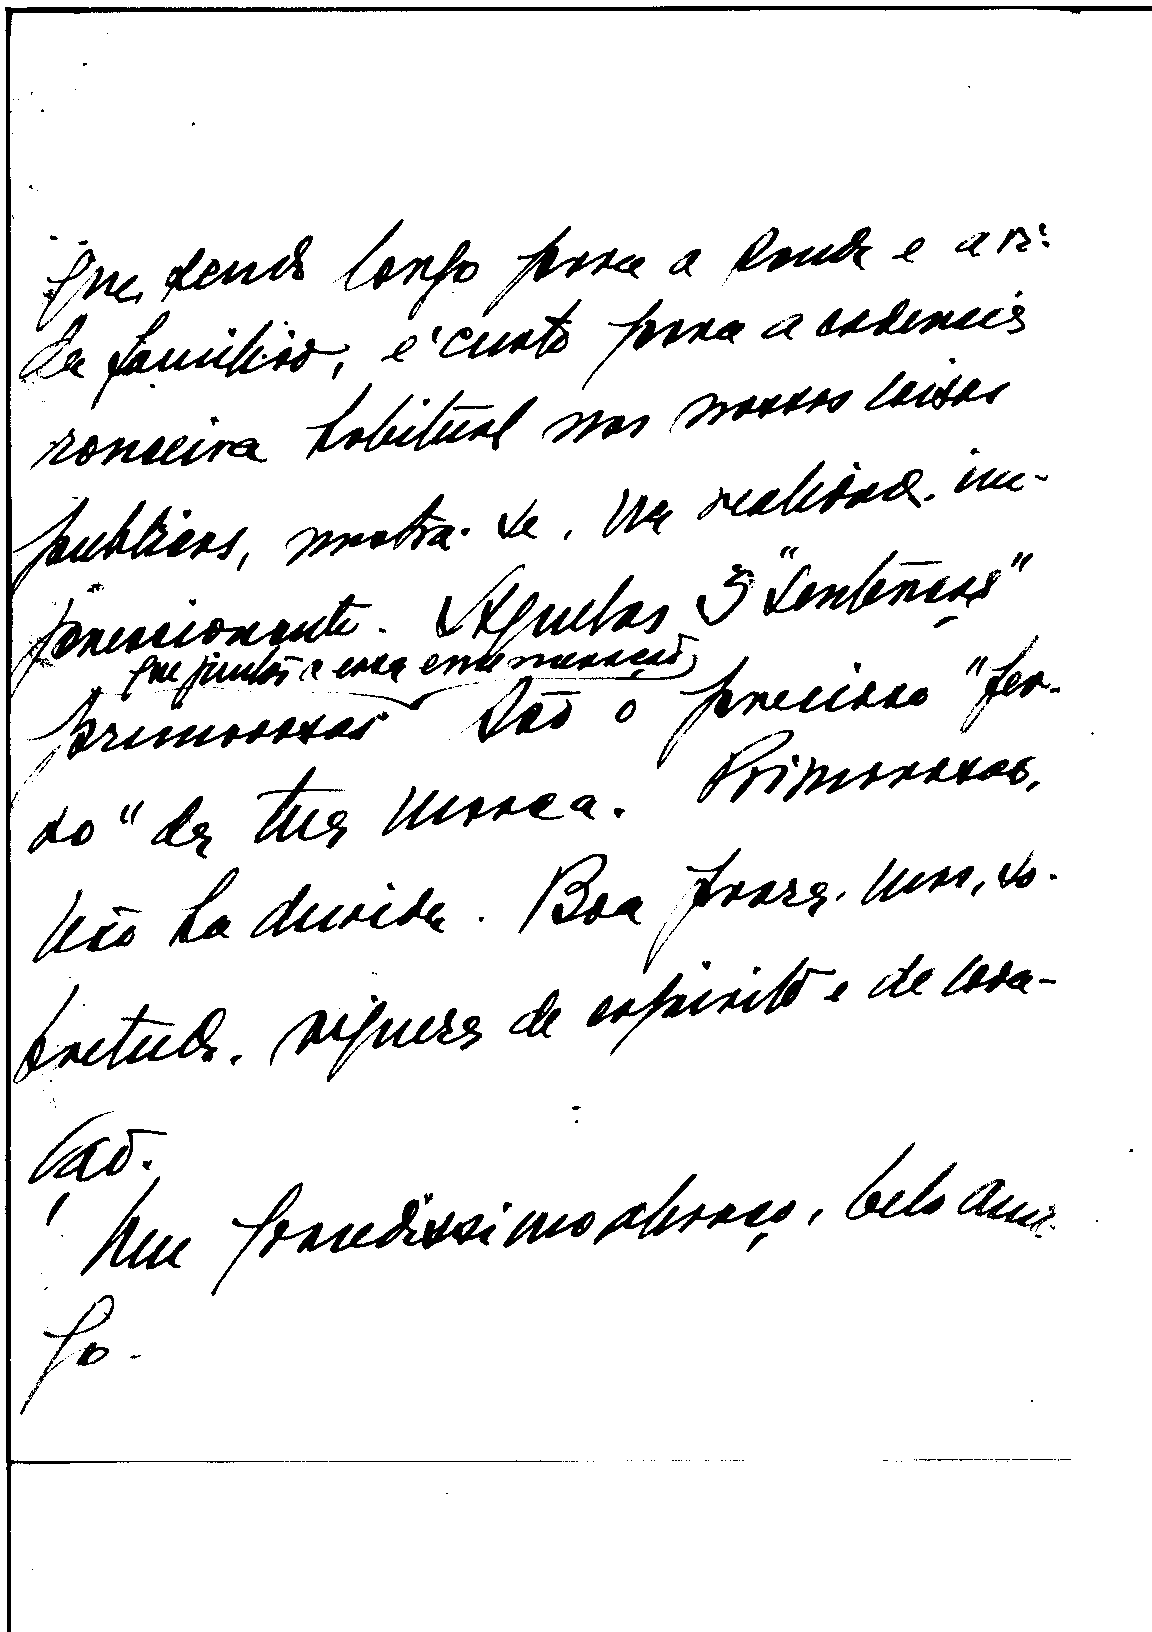 que, sendo longo para a saude e a vi-
da familiar, é curto para a cadencia
ronceira habitual nas nossas coisas
publicas, mostra-se, na realidade, im-
pressionante. Aquelas 3 "sentenças"
que juntas a essa enumeração
primorosas são o precioso "fer-
ro" da tua marca. Primorosas,
não ha duvida. Boa frase, mas, so-
bretudo, riqueza de espirito e de cora-
ção.
Um grandissimo abraço, belo ami-
go.